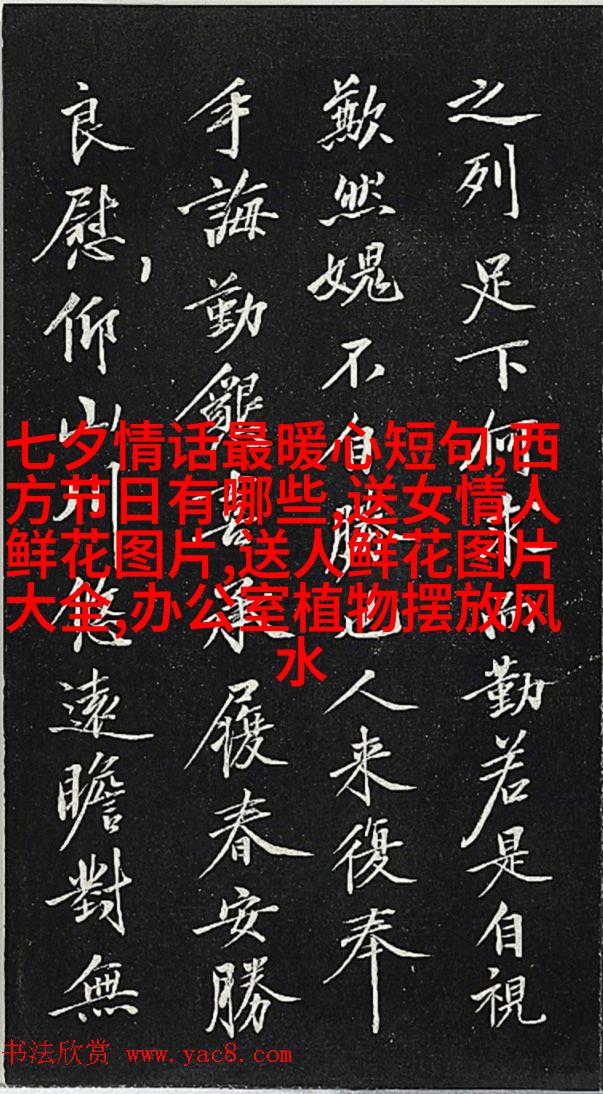 之列足下何求而勤若是自視
歉然媿不自勝也人来復奉
手誨勤艱喜承履春安勝
良慰,仰山川悠遠瞻對無
七夕情话最暖心短句,西
方节日有哪些,送女情人
鲜花图片,送人鲜花图片
大全,办公室植物摆放风
水
书法欣赏 www.yac8.com